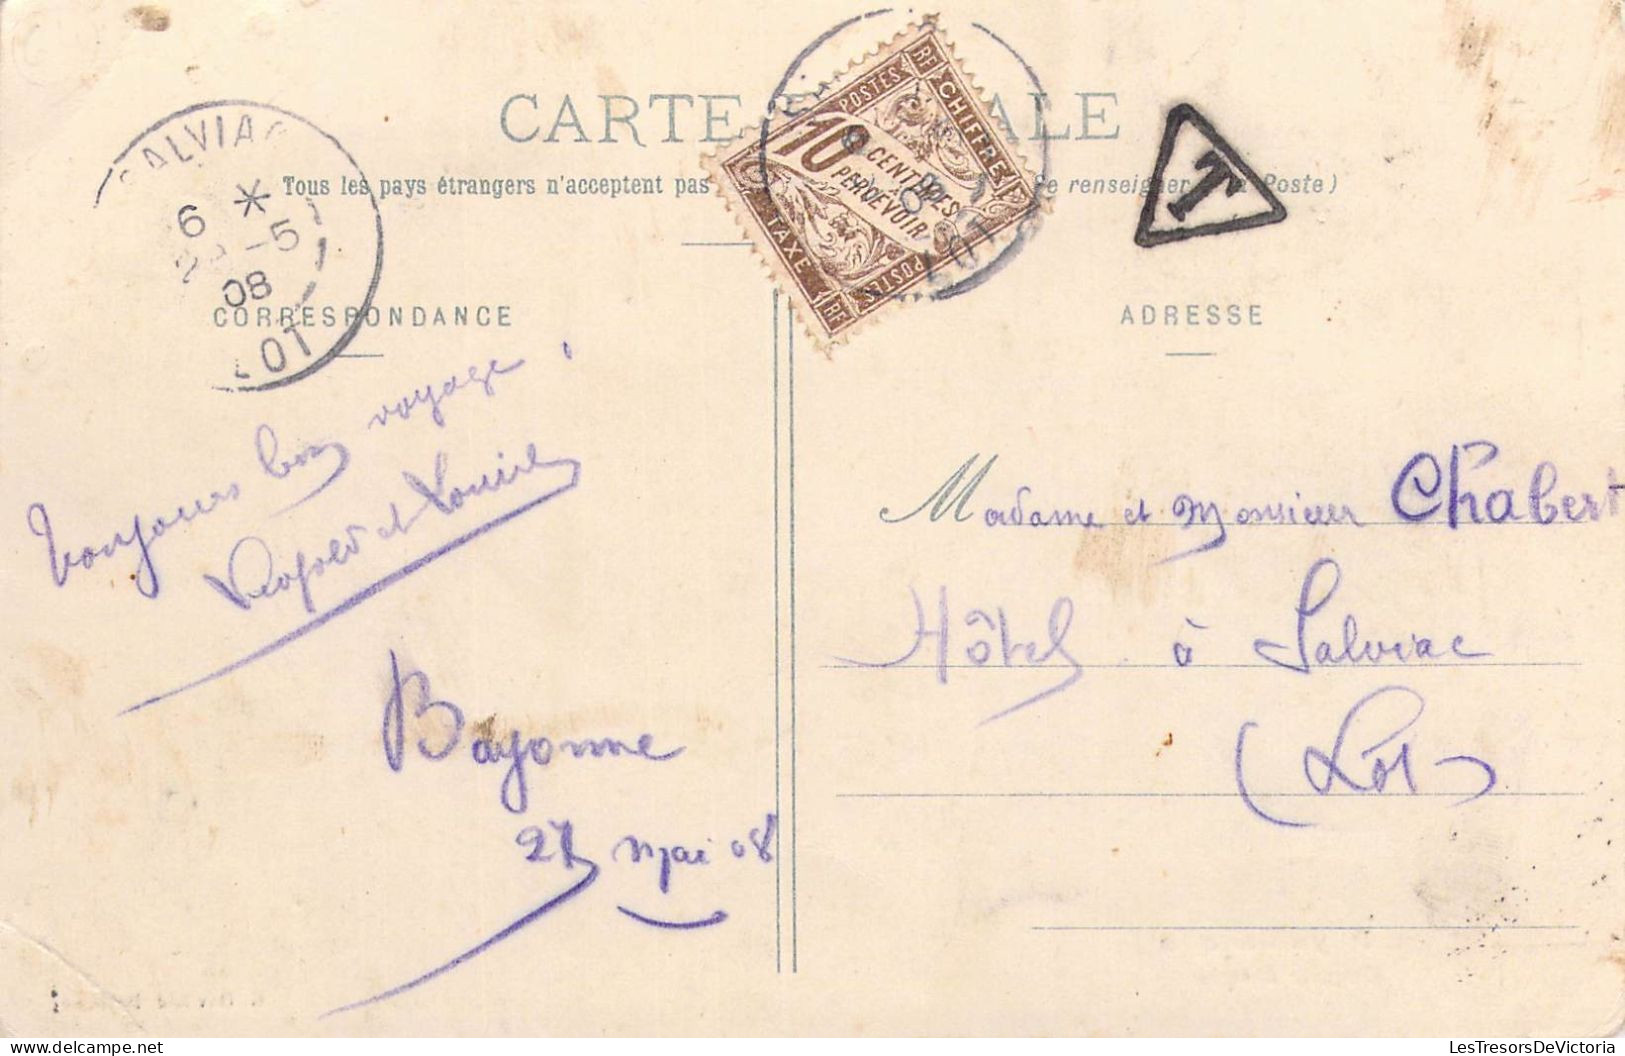 CARTE POSTALE
Tous les pays étrangers n'acceptent pas
Se renseigner à la Poste)
SALVIAC
6 *
28 -5
08
LOT
RF CHIFFRE
POSTES
10 CENTIMES
PERCEVOIR
TAXE
POSTES
RF
LOT
T
CORRESPONDANCE
ADRESSE
Toujours bon voyage !
Léopold et Louise
Bayonne
27 mai 08
Madame et Monsieur Chabert
Hôtel à Salviac
(Lot)
LesTresorsDeVictoria